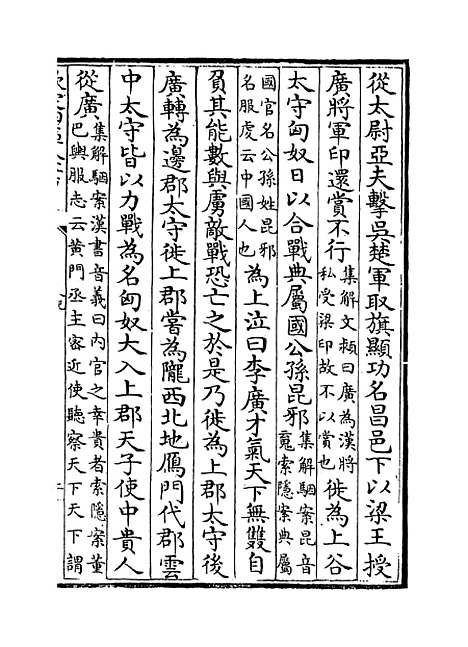 從太尉亞夫擊吳楚軍取旗顯功名昌邑下以梁王授
廣將軍印還賞不行集解文頴曰廣為漢將私受梁印故不以賞也徙為上谷
太守匈奴日以合戰典屬國公孫昆邪集解駰案昆音䰟索隱案典屬
國官名公孫姓昆邪名服虔云中國人也為上泣曰李廣才氣天下無雙自
負其能數與虜敵戰恐亡之於是乃徙為上郡太守後
廣轉為邊郡太守徙上郡嘗為隴西北地鴈門代郡雲
中太守皆以力戰為名匈奴大入上郡天子使中貴人
從廣集解駰案漢書音義曰內官之幸貴者索隱案董巴輿服志云黄門丞主密近使聽察天下天下謂